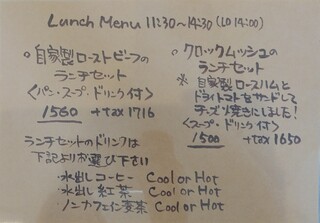 Lunch Menu 11:30~14:30 (LO 14:00)
○ 自家製ローストビーフの
ランチセット
<パン・スープ・ドリンク付>
1560 +tax 1716
○ クロックムッシュの
ランチセット
※ 自家製ロースハムと
ドライトマトをサンドして
チーズ焼きにしました!
<スープ・ドリンク付>
1500 +tax 1650
ランチセットのドリンクは
下記よりお選び下さい
水出しコーヒー Cool or Hot
水出し紅茶 Cool or Hot
ノンカフェイン麦茶 Cool or Hot